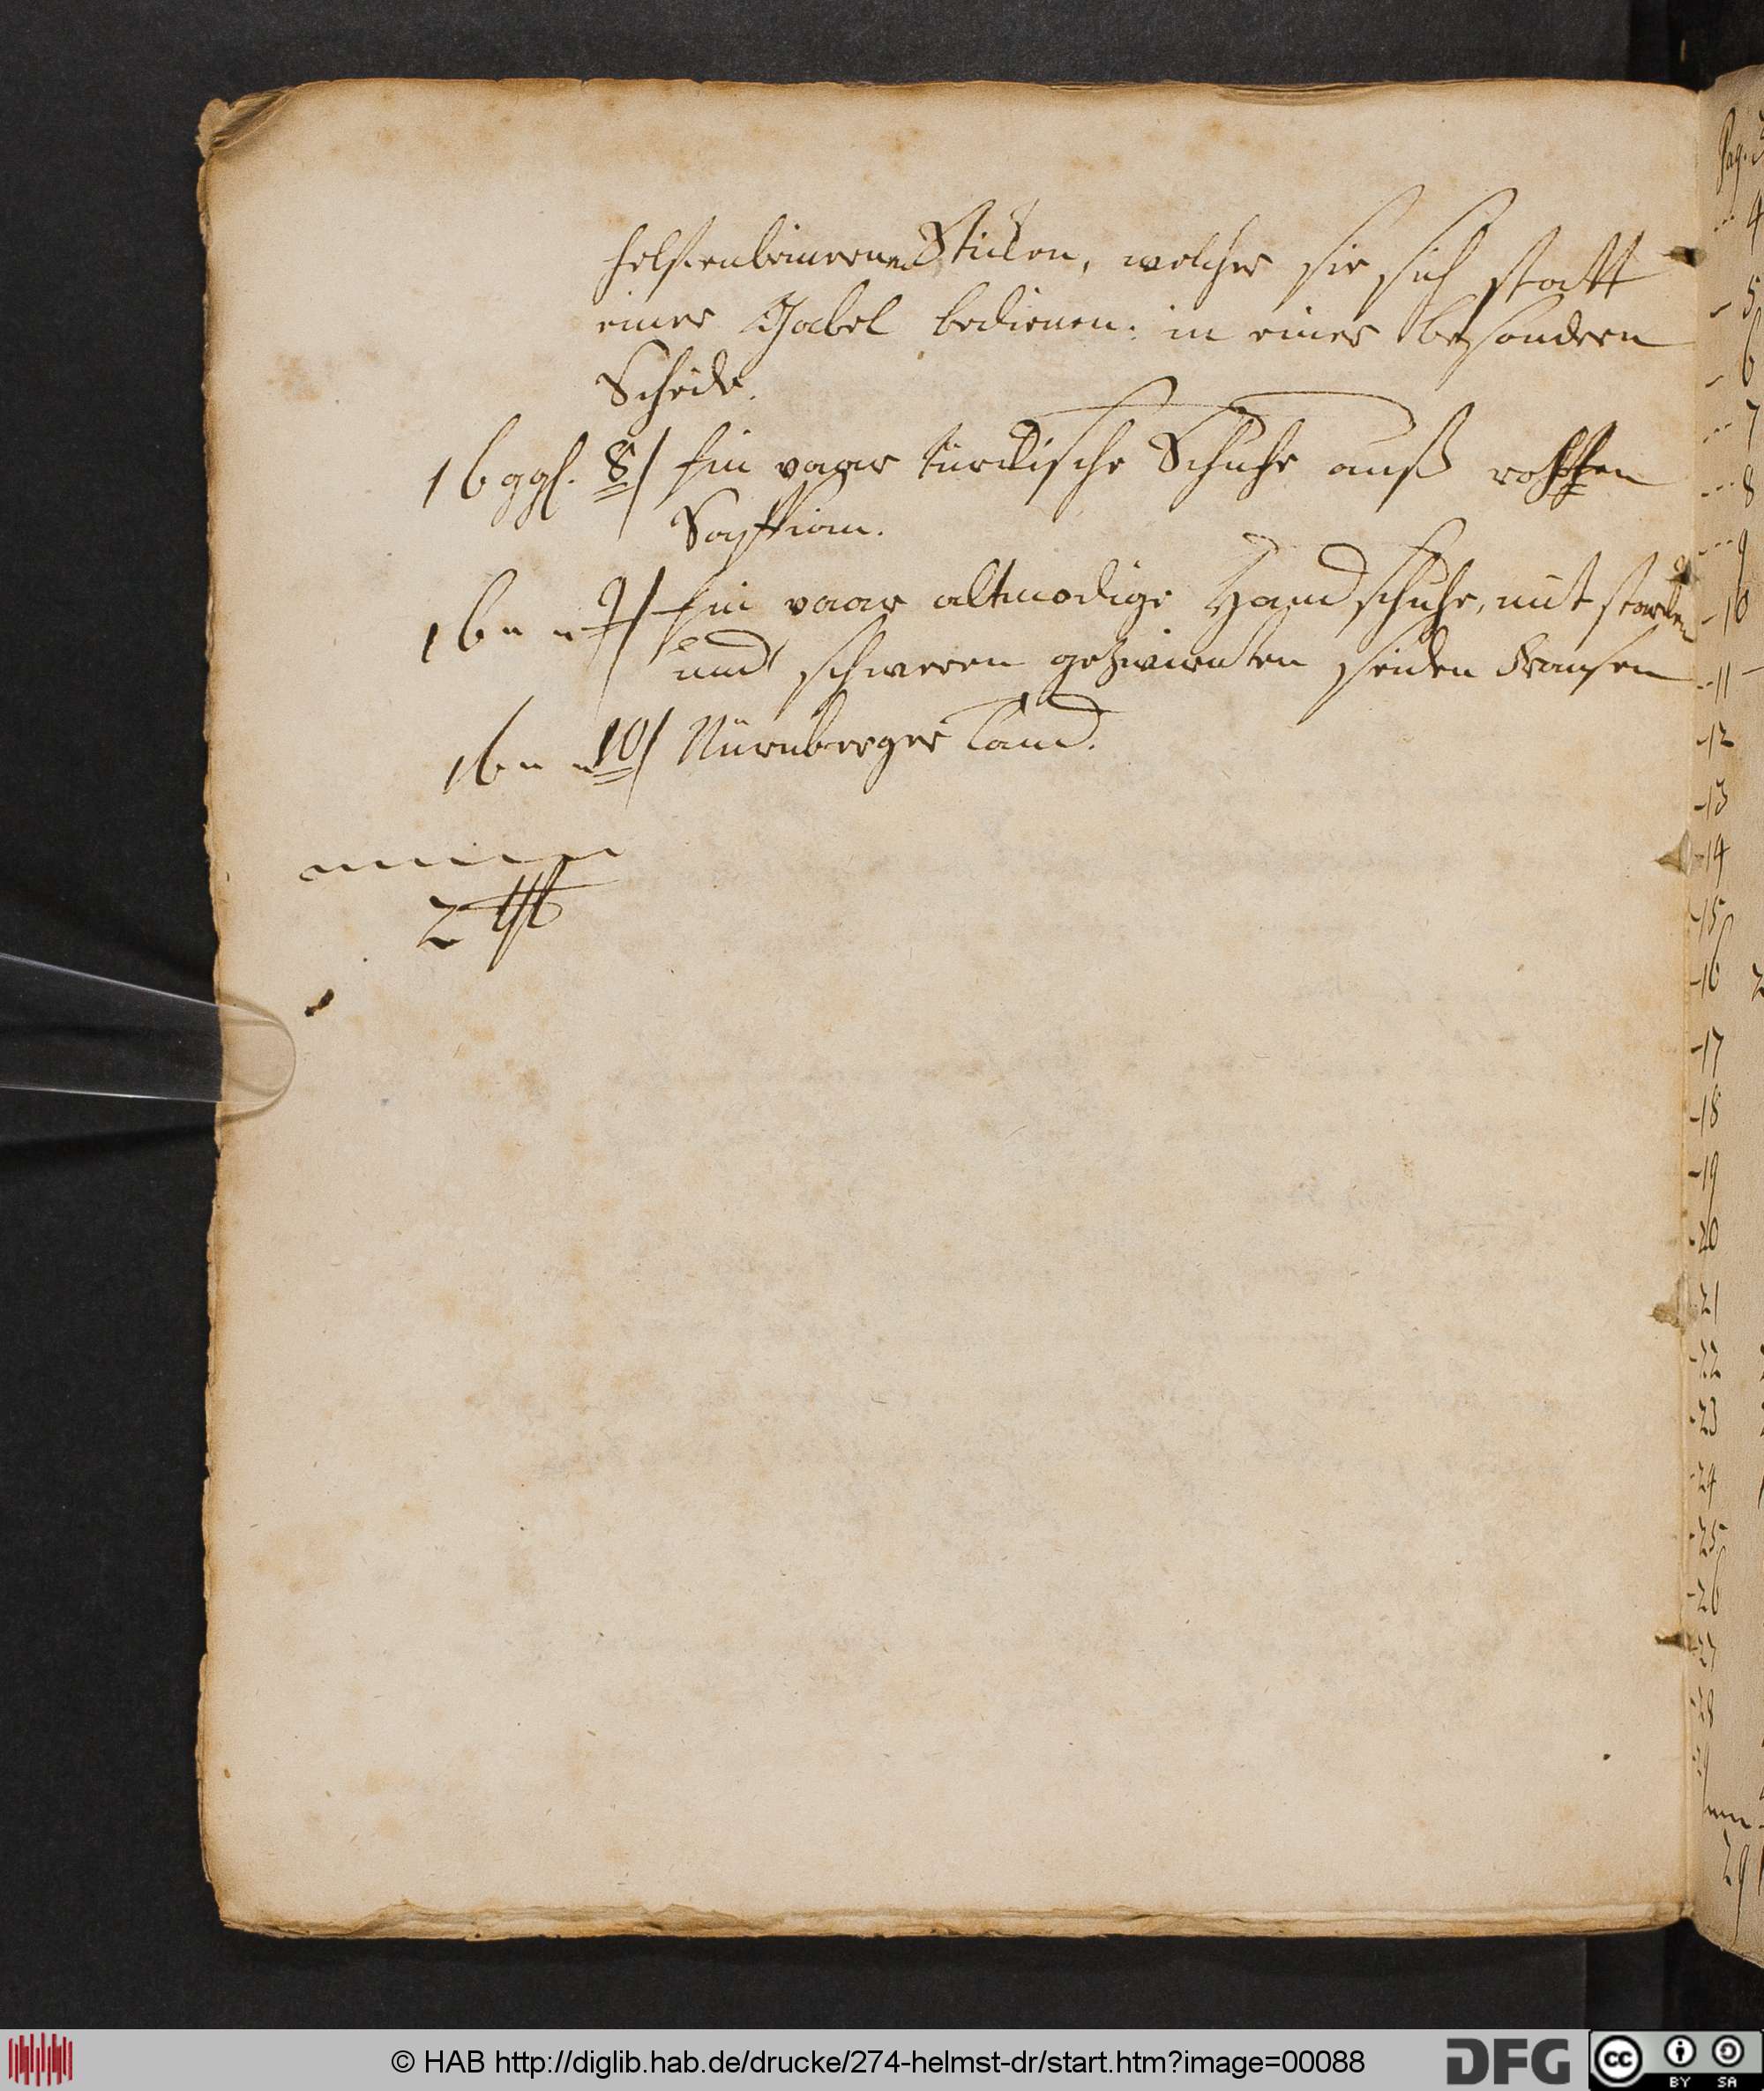 helffenbeinernen Sticken, welcher sie sich statt
einer Gabel bedienen. in einer besondern
Scheide.
16 ggl. 8/ Ein paar türckische Schuhe auß rohten
Saffian.
16 " " 9/ Ein paar altmodige Handschuhe, mit starcken
und schweren gezwirnten seiden Fransen
16 " " 10/ Nürnberger Tand.
2 thl
Pag.
4
5
6
7
8
9
10
11
12
13
14
15
16
17
18
19
20
21
22
23
24
25
26
27
28
29
© HAB http://diglib.hab.de/drucke/274-helmst-dr/start.htm?image=00088
DFG
cc
BY SA